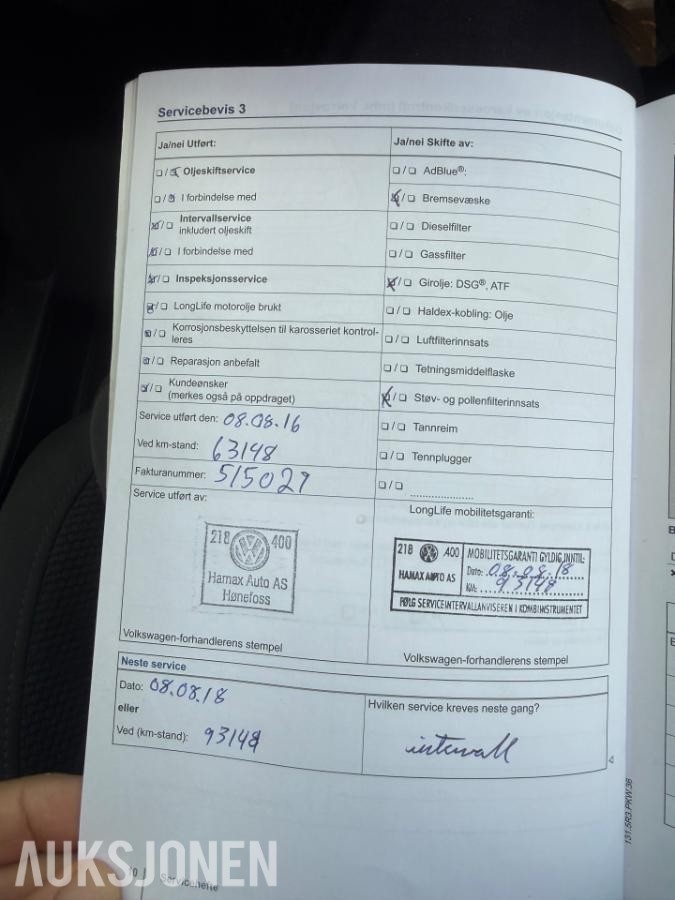 Servicebevis 3
Ja/nei Utført:
Oljeskiftservice
I forbindelse med
Intervallservice
inkludert oljeskift
I forbindelse med
Inspeksjonsservice
LongLife motorolje brukt
Korrosjonsbeskyttelsen til karosseriet kontrol-
leres
Reparasjon anbefalt
Kundeønsker
(merkes også på oppdraget)
Service utført den: 08.08.16
Ved km-stand: 63148
Fakturanummer: 515027
Service utført av:
218 400
Hamax Auto AS
Hønefoss
Volkswagen-forhandlerens stempel
Ja/nei Skifte av:
AdBlue®:
Bremsevæske
Dieselfilter
Gassfilter
Girolje: DSG®, ATF
Haldex-kobling: Olje
Luftfilterinnsats
Tetningsmiddelflaske
Støv- og pollenfilterinnsats
Tannreim
Tennplugger
LongLife mobilitetsgaranti:
218 400 MOBILITETSGARANTI GYLDIG INNTIL:
Dato: 08.08.18
HAMAX AUTO AS KM: 93148
FØLG SERVICEINTERVALLANVISEREN I KOMBIINSTRUMENTET
Volkswagen-forhandlerens stempel
Neste service
Dato: 08.08.18
eller
Ved (km-stand): 93148
Hvilken service kreves neste gang?
intervall
131.5R3.PKW.36
10 Servicehefte
AUKSJONEN